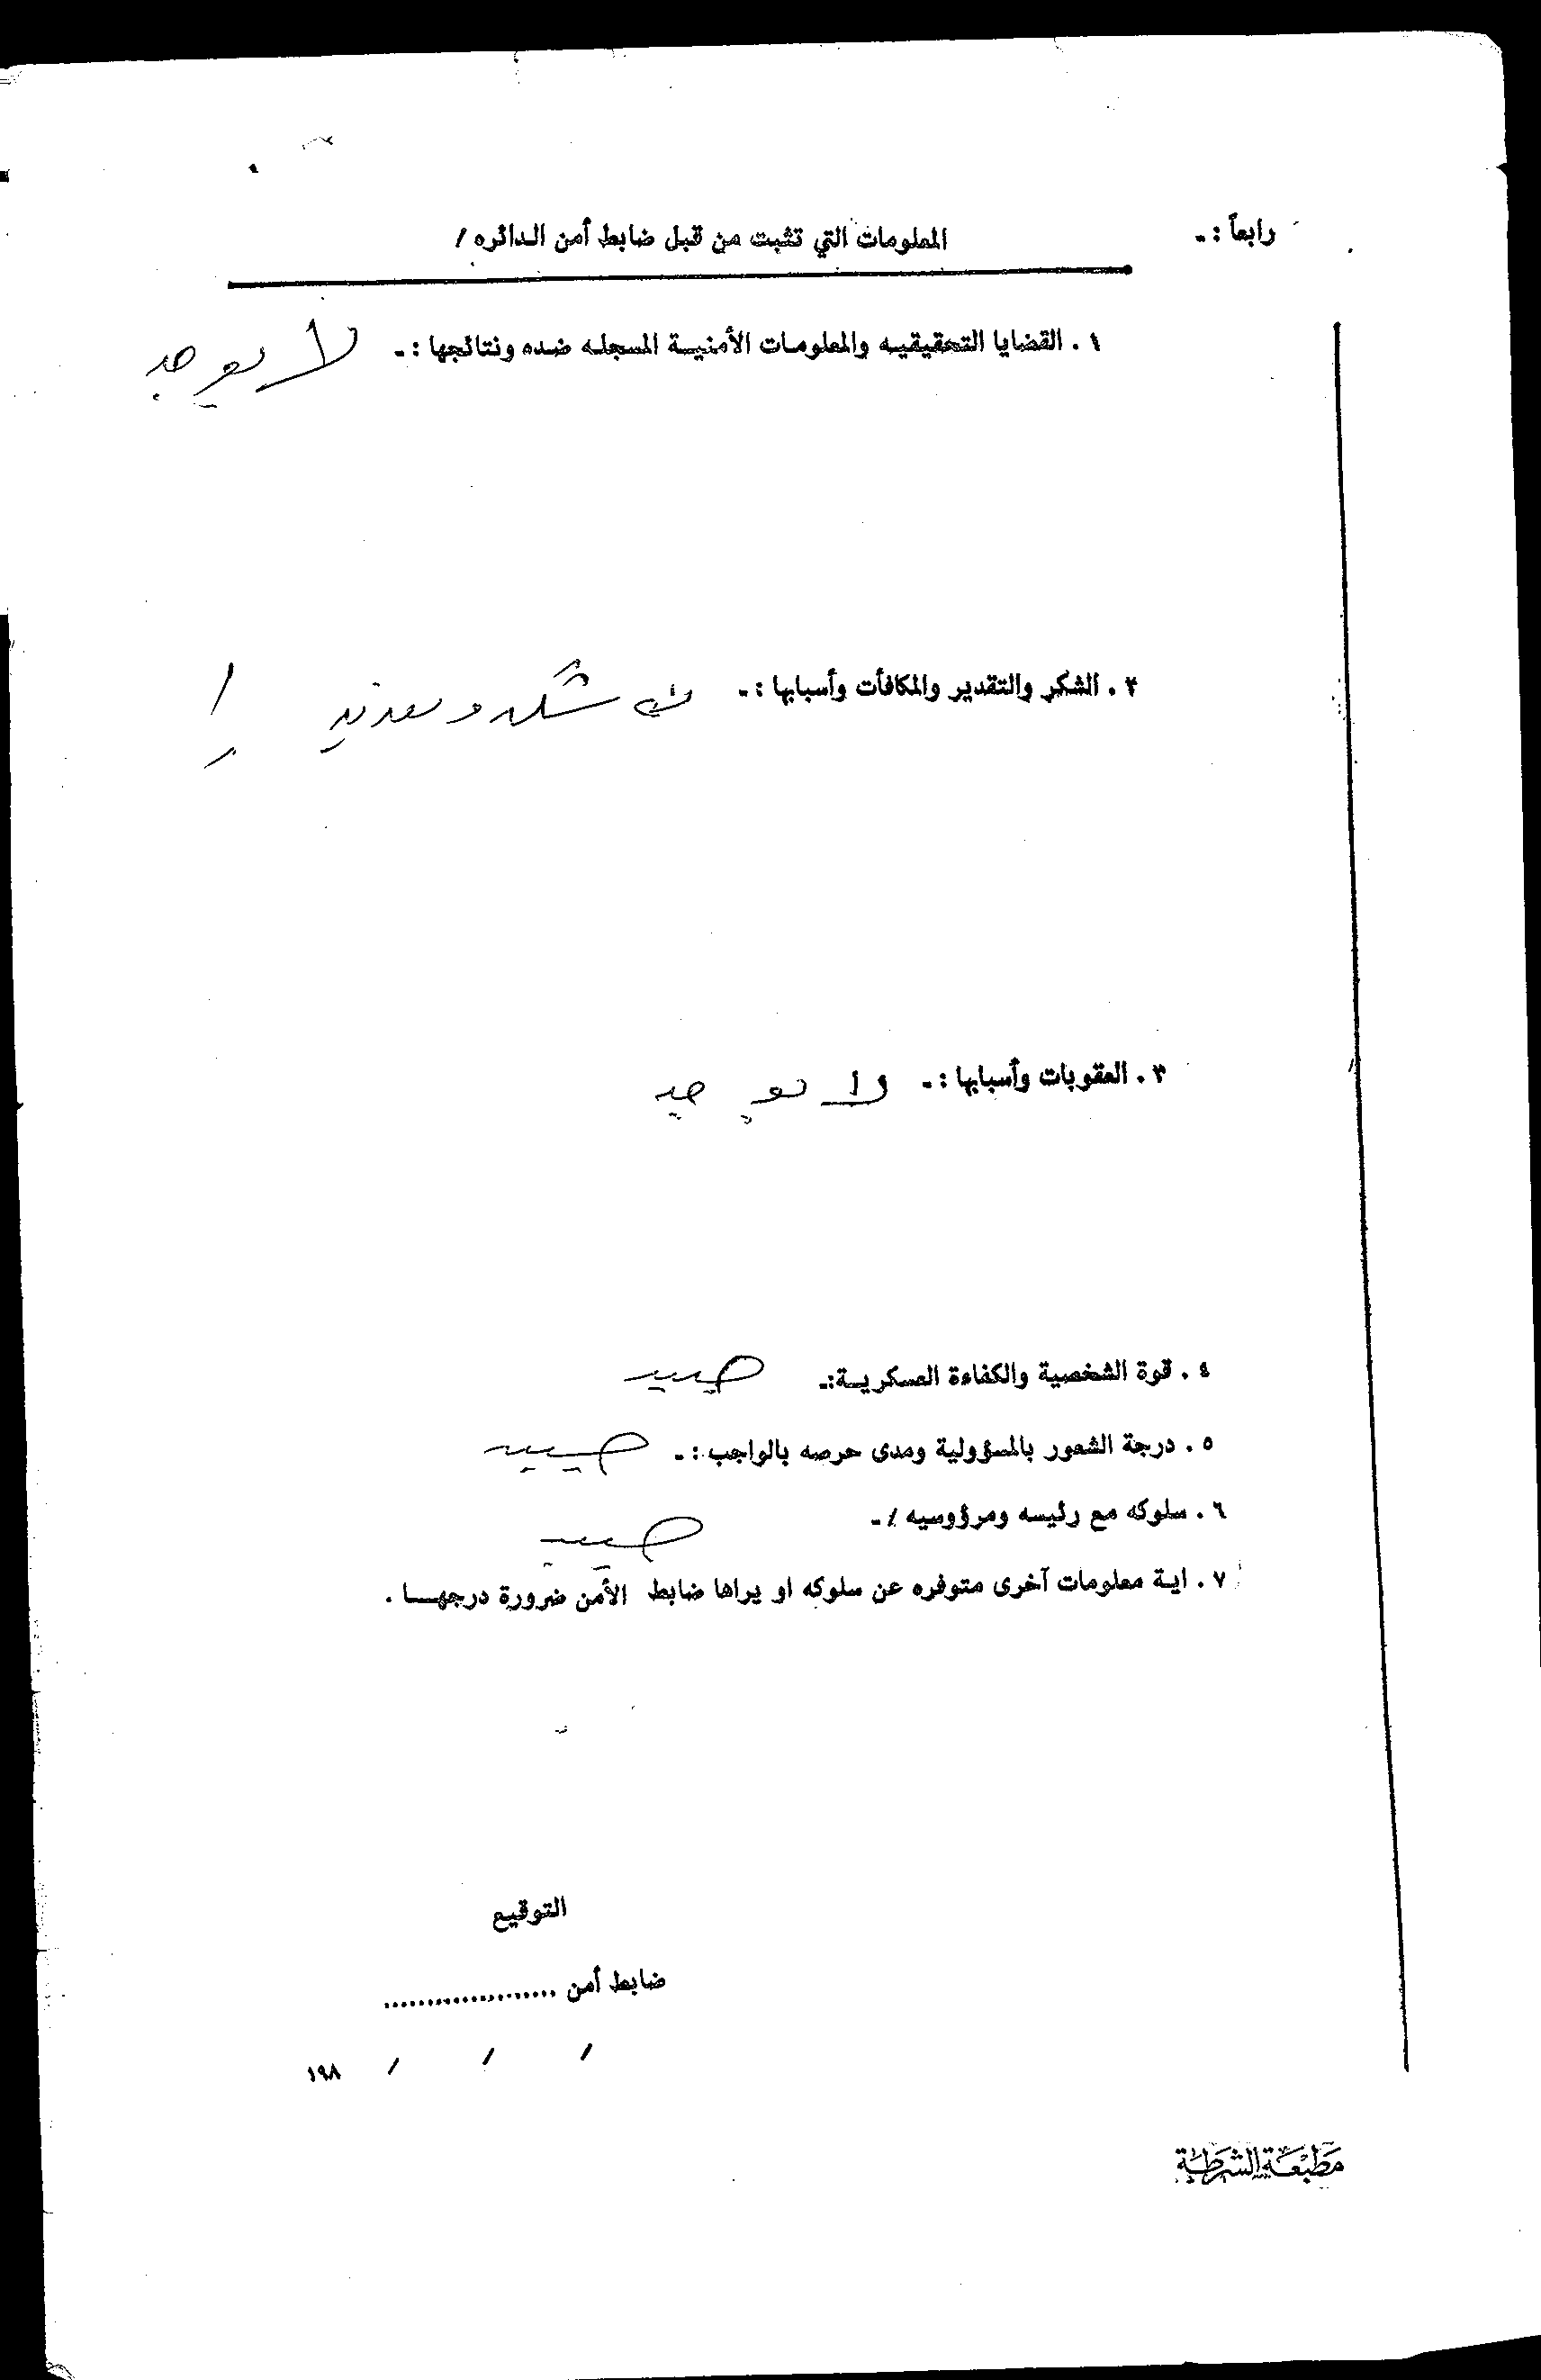 رابعاً :ـ
المعلومات التي تثبت من قبل ضابط أمن الدائره /
١ . القضايا التحقيقيه والمعلومات الأمنية المسجله ضده ونتائجها :ـ لا يوجد
٢ . الشكر والتقدير والمكافأت وأسبابها :ـ شكر وتقدير
٣ . العقوبات وأسبابها :ـ لا يوجد
٤ . قوة الشخصية والكفاءة العسكرية:ـ جيد
٥ . درجة الشعور بالمسؤولية ومدى حرصه بالواجب :ـ جيد
٦ . سلوكه مع رئيسه ومرؤوسيه /ـ جيد
٧ . اية معلومات آخرى متوفره عن سلوكه او يراها ضابط الأمن ضرورة درجها .
التوقيع
ضابط أمن ....................
/ / / ١٩٨
مطبعة الشرطة